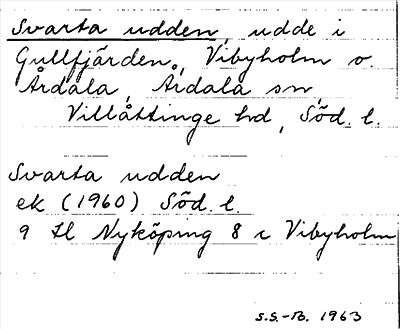 Svarta udden, udde i
Gullfjärden, Vibyholm o.
Årdala, Årdala sn,
Villåttinge hd, Söd. l.
Svarta udden
ek (1960) Söd. l.
9 H Nyköping 8 c Vibyholm
S.S.-B. 1963